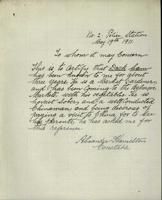 No. 2 Police Station
May 19th 1911
To whom it may concern
This is to certify that
has been known to me for about
three years. He is a Market Gardener
and has been coming to the
Market with his vegetables. He is
honest sober and a well conducted
Chinaman and being desirous of
paying a visit to China for to see
his parents he has asked me for
this reference.
Alexander Hamilton
Constable